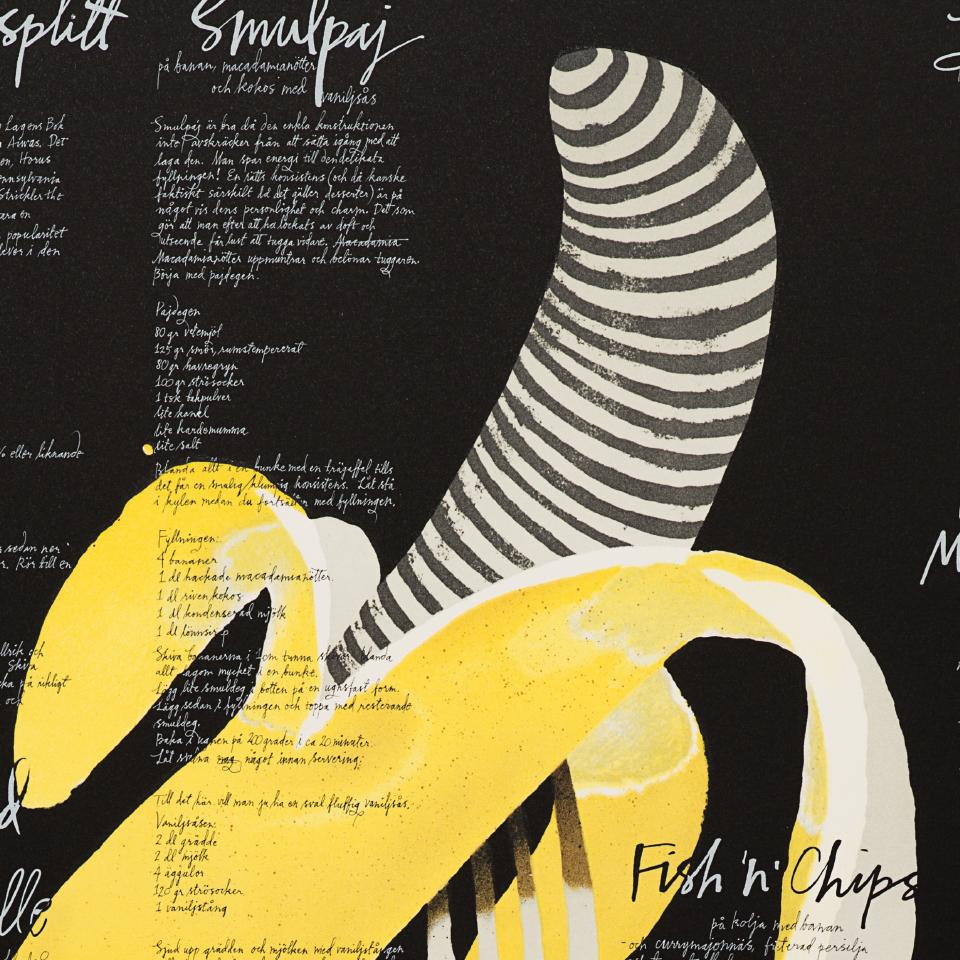 splitt
Lagens Bok
Aiwas. Det
on, Horus
ennsylvania
Strickler the
vara en
popularitet
lever i den
% eller liknande
sedan ner i
r. Rör till en
Skiva
ka på rikligt
och
Smulpaj
på banan, macadamianötter
och kokos med vaniljsås
Smulpaj är bra då den enkla konstruktionen
inte avskräcker från att sätta igång med att
laga den. Man spar energi till den delikata
fyllningen! En rätts konsistens (och då kanske
faktiskt särskilt då det gäller desserter) är på
något vis dens personlighet och charm. Det som
gör att man efter att ha lockats av doft och
utseende får lust att tugga vidare. Macadamia
Macadamianötter uppmuntrar och belönar tuggaren.
Börja med pajdegen.
Pajdegen
80 gr vetemjöl
125 gr smör, rumstempererat
80 gr havregryn
100 gr strösocker
1 tsk bakpulver
lite kanel
lite kardemumma
lite salt
Blanda allt i en bunke med en trägaffel tills
det får en smulig klumpig konsistens. Låt stå
i kylen medan du fortsätter med fyllningen.
Fyllningen:
4 bananer
1 dl hackade macadamianötter.
1 dl riven kokos
1 dl kondenserad mjölk
1 dl lönnsirap
Skiva bananerna i 1 cm tunna blanda
allt lagom mycket i en bunke.
Lägg lite smuldeg i botten på en ugnsfast form.
Lägg sedan i fyllningen och toppa med resterande
smuldeg.
Baka i ugnen på 200 grader i ca 20 minuter.
Låt svalna något innan servering.
Till det här vill man ju ha en sval fluffig vaniljsås.
Vaniljsåsen:
2 dl grädde
2 dl mjölk
4 äggulor
120 gr strösocker
1 vaniljstång
Sjud upp grädden och mjölken med vaniljstången
Fish 'n' Chips
på kolja med banan
och currymajonnäs, friterad persilja